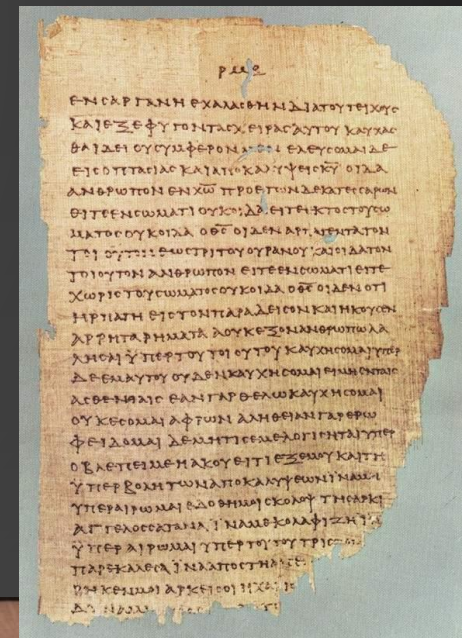 ΕΝϹΑΡΓΑΝΗΕΧΑΛΑϹΘΗΝΔΙΑΤΟΥΤΕΙΧΟΥϹ
ΚΑΙΕΞΕΦΥΓΟΝΤΑϹΧΕΙΡΑϹΑΥΤΟΥΚΑΥΧΑϹ
ΘΑΙΔΕΙΟΥϹΥΜΦΕΡΟΝΜΕΝΕΛΕΥϹΟΜΑΙΔΕ
ΕΙϹΟΠΤΑϹΙΑϹΚΑΙΑΠΟΚΑΛΥΨΕΙϹΚ̅Υ̅ΟΙΔΑ
ΑΝΘΡΩΠΟΝΕΝΧ̅Ω̅ΠΡΟΕΤΩΝΔΕΚΑΤΕϹϹΑΡΩΝ
ΕΙΤΕΕΝϹΩΜΑΤΙΟΥΚΟΙΔΑΕΙΤΕΕΚΤΟϹΤΟΥϹΩ
ΜΑΤΟϹΟΥΚΟΙΔΑΟΘ̅Ϲ̅ΟΙΔΕΝΑΡΠΑΓΕΝΤΑΤΟΝ
ΤΟΙΟΥΤΟΝΕΩϹΤΡΙΤΟΥΟΥΡΑΝΟΥΚΑΙΟΙΔΑΤΟΝ
ΤΟΙΟΥΤΟΝΑΝΘΡΩΠΟΝΕΙΤΕΕΝϹΩΜΑΤΙΕΙΤΕ
ΧΩΡΙϹΤΟΥϹΩΜΑΤΟϹΟΥΚΟΙΔΑΟΘ̅Ϲ̅ΟΙΔΕΝΟΤΙ
ΗΡΠΑΓΗΕΙϹΤΟΝΠΑΡΑΔΕΙϹΟΝΚΑΙΗΚΟΥϹΕΝ
ΑΡΡΗΤΑΡΗΜΑΤΑΑΟΥΚΕΞΟΝΑΝΘΡΩΠΩΛΑ
ΛΗϹΑΙΫΠΕΡΤΟΥΤΟΙΟΥΤΟΥΚΑΥΧΗϹΟΜΑΙΥΠΕΡ
ΔΕΕΜΑΥΤΟΥΟΥΔΕΝΚΑΥΧΗϹΟΜΑΙΕΙΜΗΕΝΤΑΙϹ
ΑϹΘΕΝΕΙΑΙϹΕΑΝΓΑΡΘΕΛΩΚΑΥΧΗϹΟΜΑΙ
ΟΥΚΕϹΟΜΑΙΑΦΡΩΝΑΛΗΘΕΙΑΝΓΑΡΕΡΩ
ΦΕΙΔΟΜΑΙΔΕΜΗΤΙϹΕΜΕΛΟΓΙϹΗΤΑΙΥΠΕΡ
ΟΒΛΕΠΕΙΜΕΗΑΚΟΥΕΙΤΙΕΞΕΜΟΥΚΑΙΤΗ
ΫΠΕΡΒΟΛΗΤΩΝΑΠΟΚΑΛΥΨΕΩΝΪΝΑΜΗ
ΥΠΕΡΑΙΡΩΜΑΙΕΔΟΘΗΜΟΙϹΚΟΛΟΨΤΗϹΑΡΚΙ
ΑΓΓΕΛΟϹϹΑΤΑΝΑΪΝΑΜΕΚΟΛΑΦΙΖΗΪΝΑ
ΫΠΕΡΑΙΡΩΜΑΙΥΠΕΡΤΟΥΤΟΥΤΡΙϹ
ΠΑΡΕΚΑΛΕϹΑΪΝΑΑΠΟϹΤΗ
ΡΗΚΕΝΜΟΙΑΡΚΕΙϹΟΙΗΧΑΡΙϹ